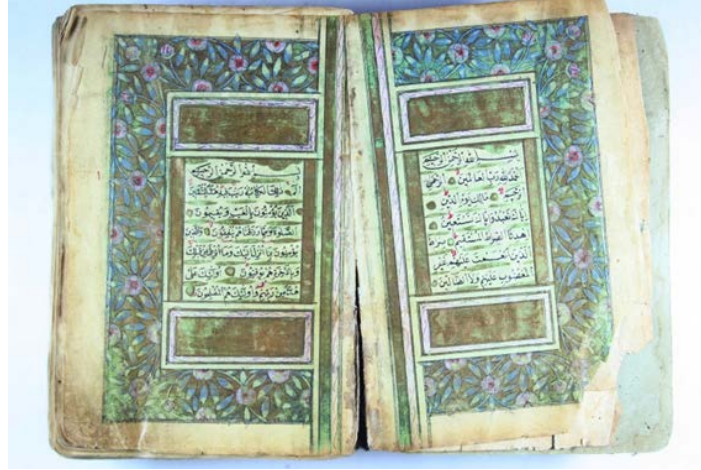 بسم الله الرحمن الرحيم
الحمد لله رب العالمين الرحمن
الرحيم مالك يوم الدين
اياك نعبد واياك نستعين
اهدنا الصراط المستقيم صراط
الذين انعمت عليهم غير
المغضوب عليهم ولا الضالين
بسم الله الرحمن الرحيم
الم ذلك الكتاب لا ريب فيه هدى للمتقين
الذين يؤمنون بالغيب ويقيمون
الصلوة ومما رزقناهم ينفقون والذين
يؤمنون بما انزل اليك وما انزل من قبلك
وبالاخرة هم يوقنون اولئك على
هدى من ربهم واولئك هم المفلحون